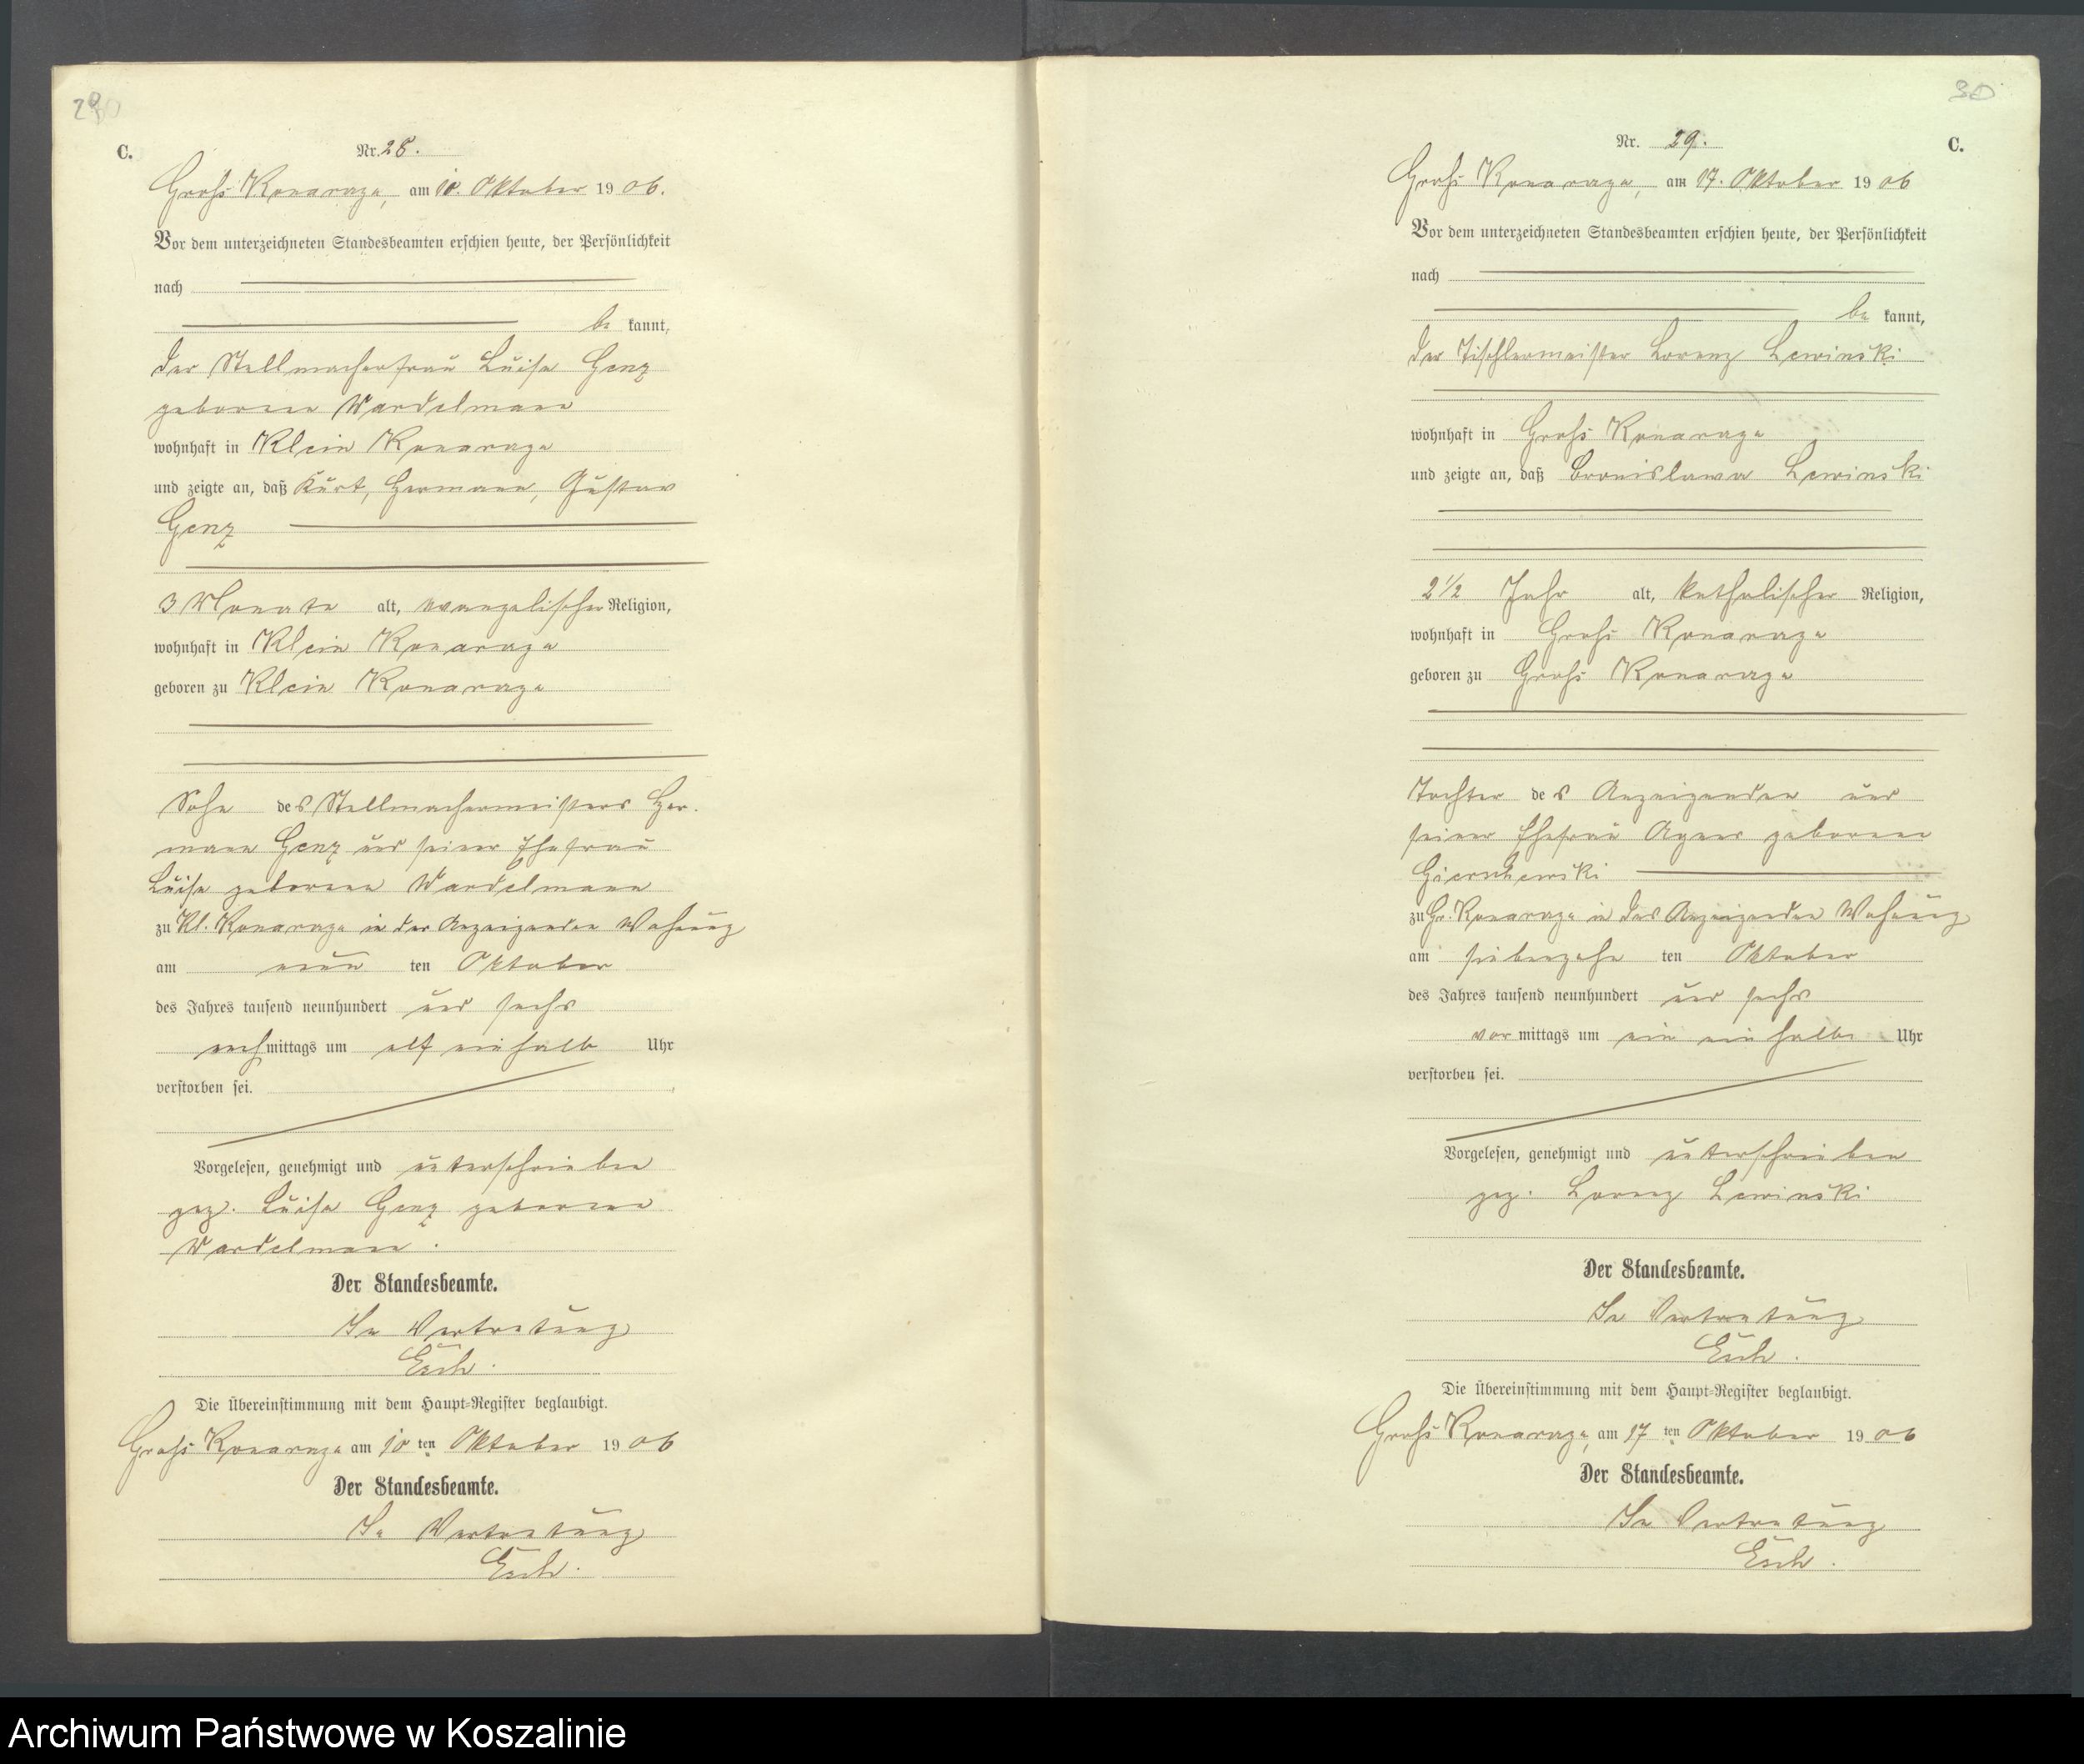 29
C.
Nr. 28.
Groß Konarzyn, am 10. Oktober 1906.
Vor dem unterzeichneten Standesbeamten erschien heute, der Persönlichkeit
nach
be kannt,
der Stellmacherfrau Luise Genz
geborene Wardelmann
wohnhaft in Klein Konarzyn
und zeigte an, daß Kurt, Hermann, Gustav
Genz
3 Monate alt, evangelischer Religion,
wohnhaft in Klein Konarzyn
geboren zu Klein Konarzyn
Sohn des Stellmachermeisters Her-
mann Genz und seiner Ehefrau
Luise geborene Wardelmann
zu Kl. Konarzyn in der Anzeigenden Wohnung
am neun ten Oktober
des Jahres tausend neunhundert und sechs
nach mittags um elf ein halb Uhr
verstorben sei.
Vorgelesen, genehmigt und unterschrieben
gez. Luise Genz geborene
Wardelmann.
Der Standesbeamte.
In Vertretung
Esch.
Die Übereinstimmung mit dem Haupt-Register beglaubigt.
Groß Konarzyn am 10 ten Oktober 1906
Der Standesbeamte.
In Vertretung
Esch.
30
Nr. 29.
C.
Groß Konarzyn, am 17. Oktober 1906
Vor dem unterzeichneten Standesbeamten erschien heute, der Persönlichkeit
nach
be kannt,
der Tischlermeister Lorenz Lewinski
wohnhaft in Groß Konarzyn
und zeigte an, daß Bronislawa Lewinski
2 1/2 Jahr alt, katholischer Religion,
wohnhaft in Groß Konarzyn
geboren zu Groß Konarzyn
Tochter des Anzeigenden und
seiner Ehefrau Agnes geborene
Gierschewski
zu Gr. Konarzyn in des Anzeigenden Wohnung
am siebenzehn ten Oktober
des Jahres tausend neunhundert und sechs
vor mittags um ein ein halb Uhr
verstorben sei.
Vorgelesen, genehmigt und unterschrieben
gez. Lorenz Lewinski
Der Standesbeamte.
In Vertretung
Esch.
Die Übereinstimmung mit dem Haupt-Register beglaubigt.
Groß Konarzyn, am 17 ten Oktober 1906
Der Standesbeamte.
In Vertretung
Esch.
Archiwum Państwowe w Koszalinie